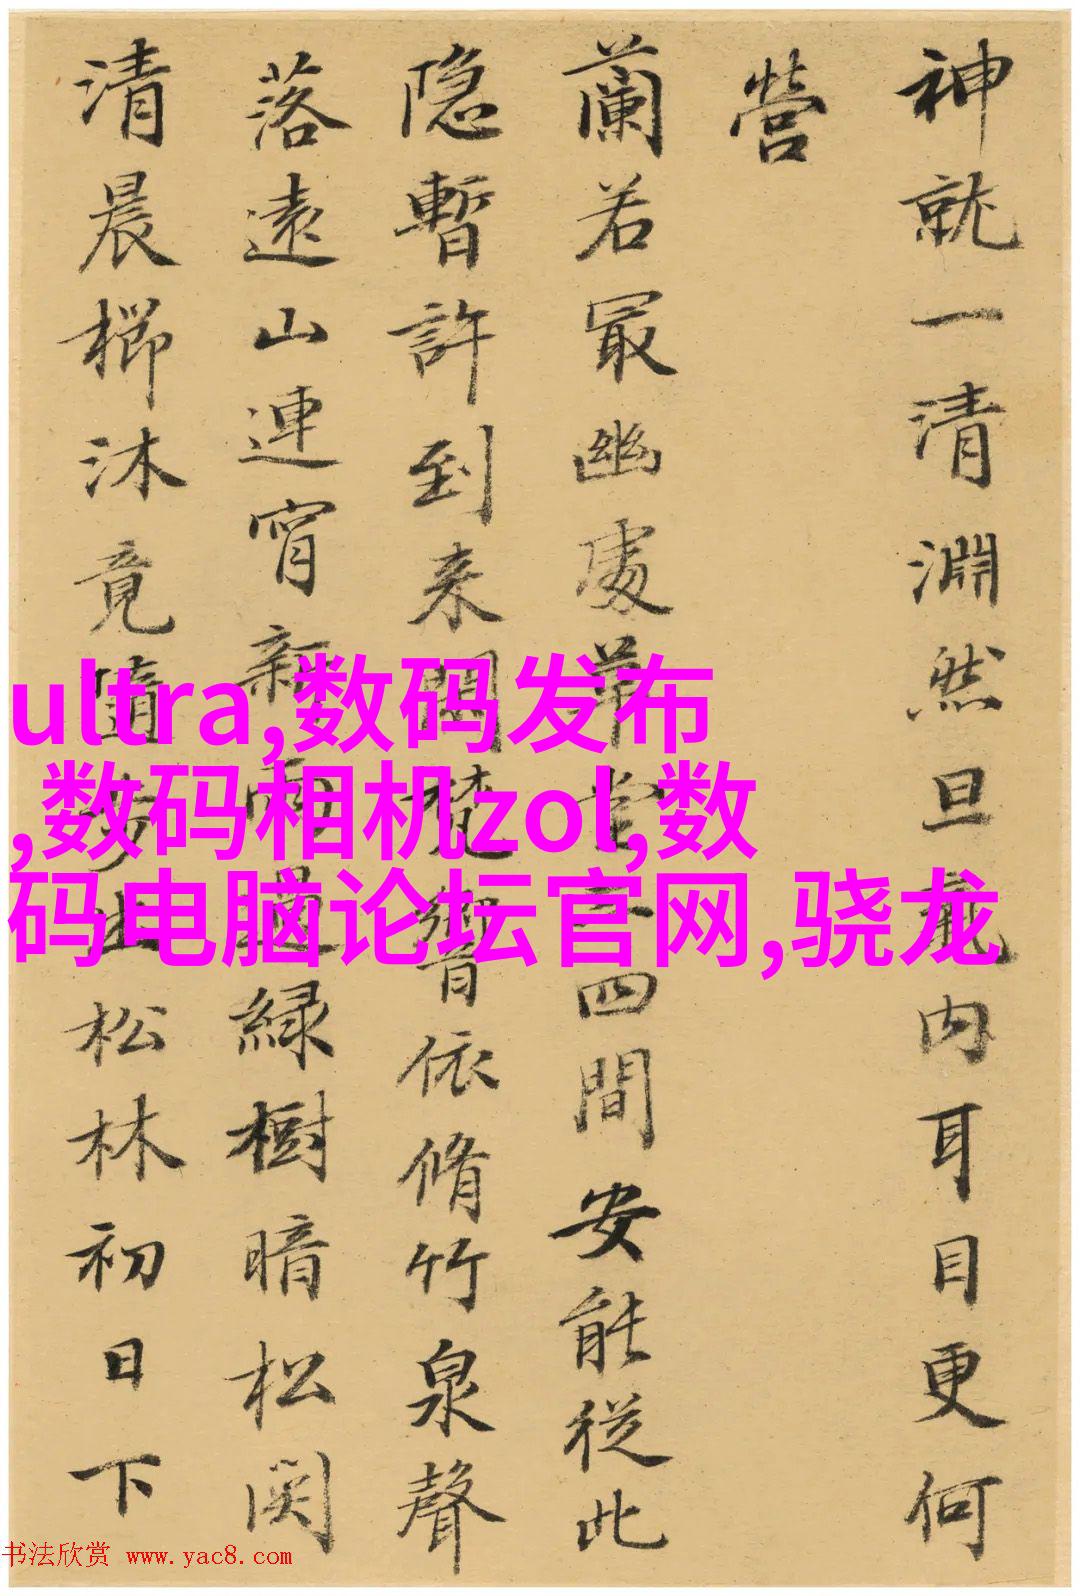 神就一清淵然旦氣内耳目更何
營
蘭若冣幽處茆堂四間安能從此
隐暫許到来聞梵響依脩竹泉聲
落遠山連宵新雨過緑樹暗松関
清晨櫛沐竟随步出松林初日下
ultra,数码发布
,数码相机zol,数
码电脑论坛官网,骁龙
书法欣赏 www.yac8.com